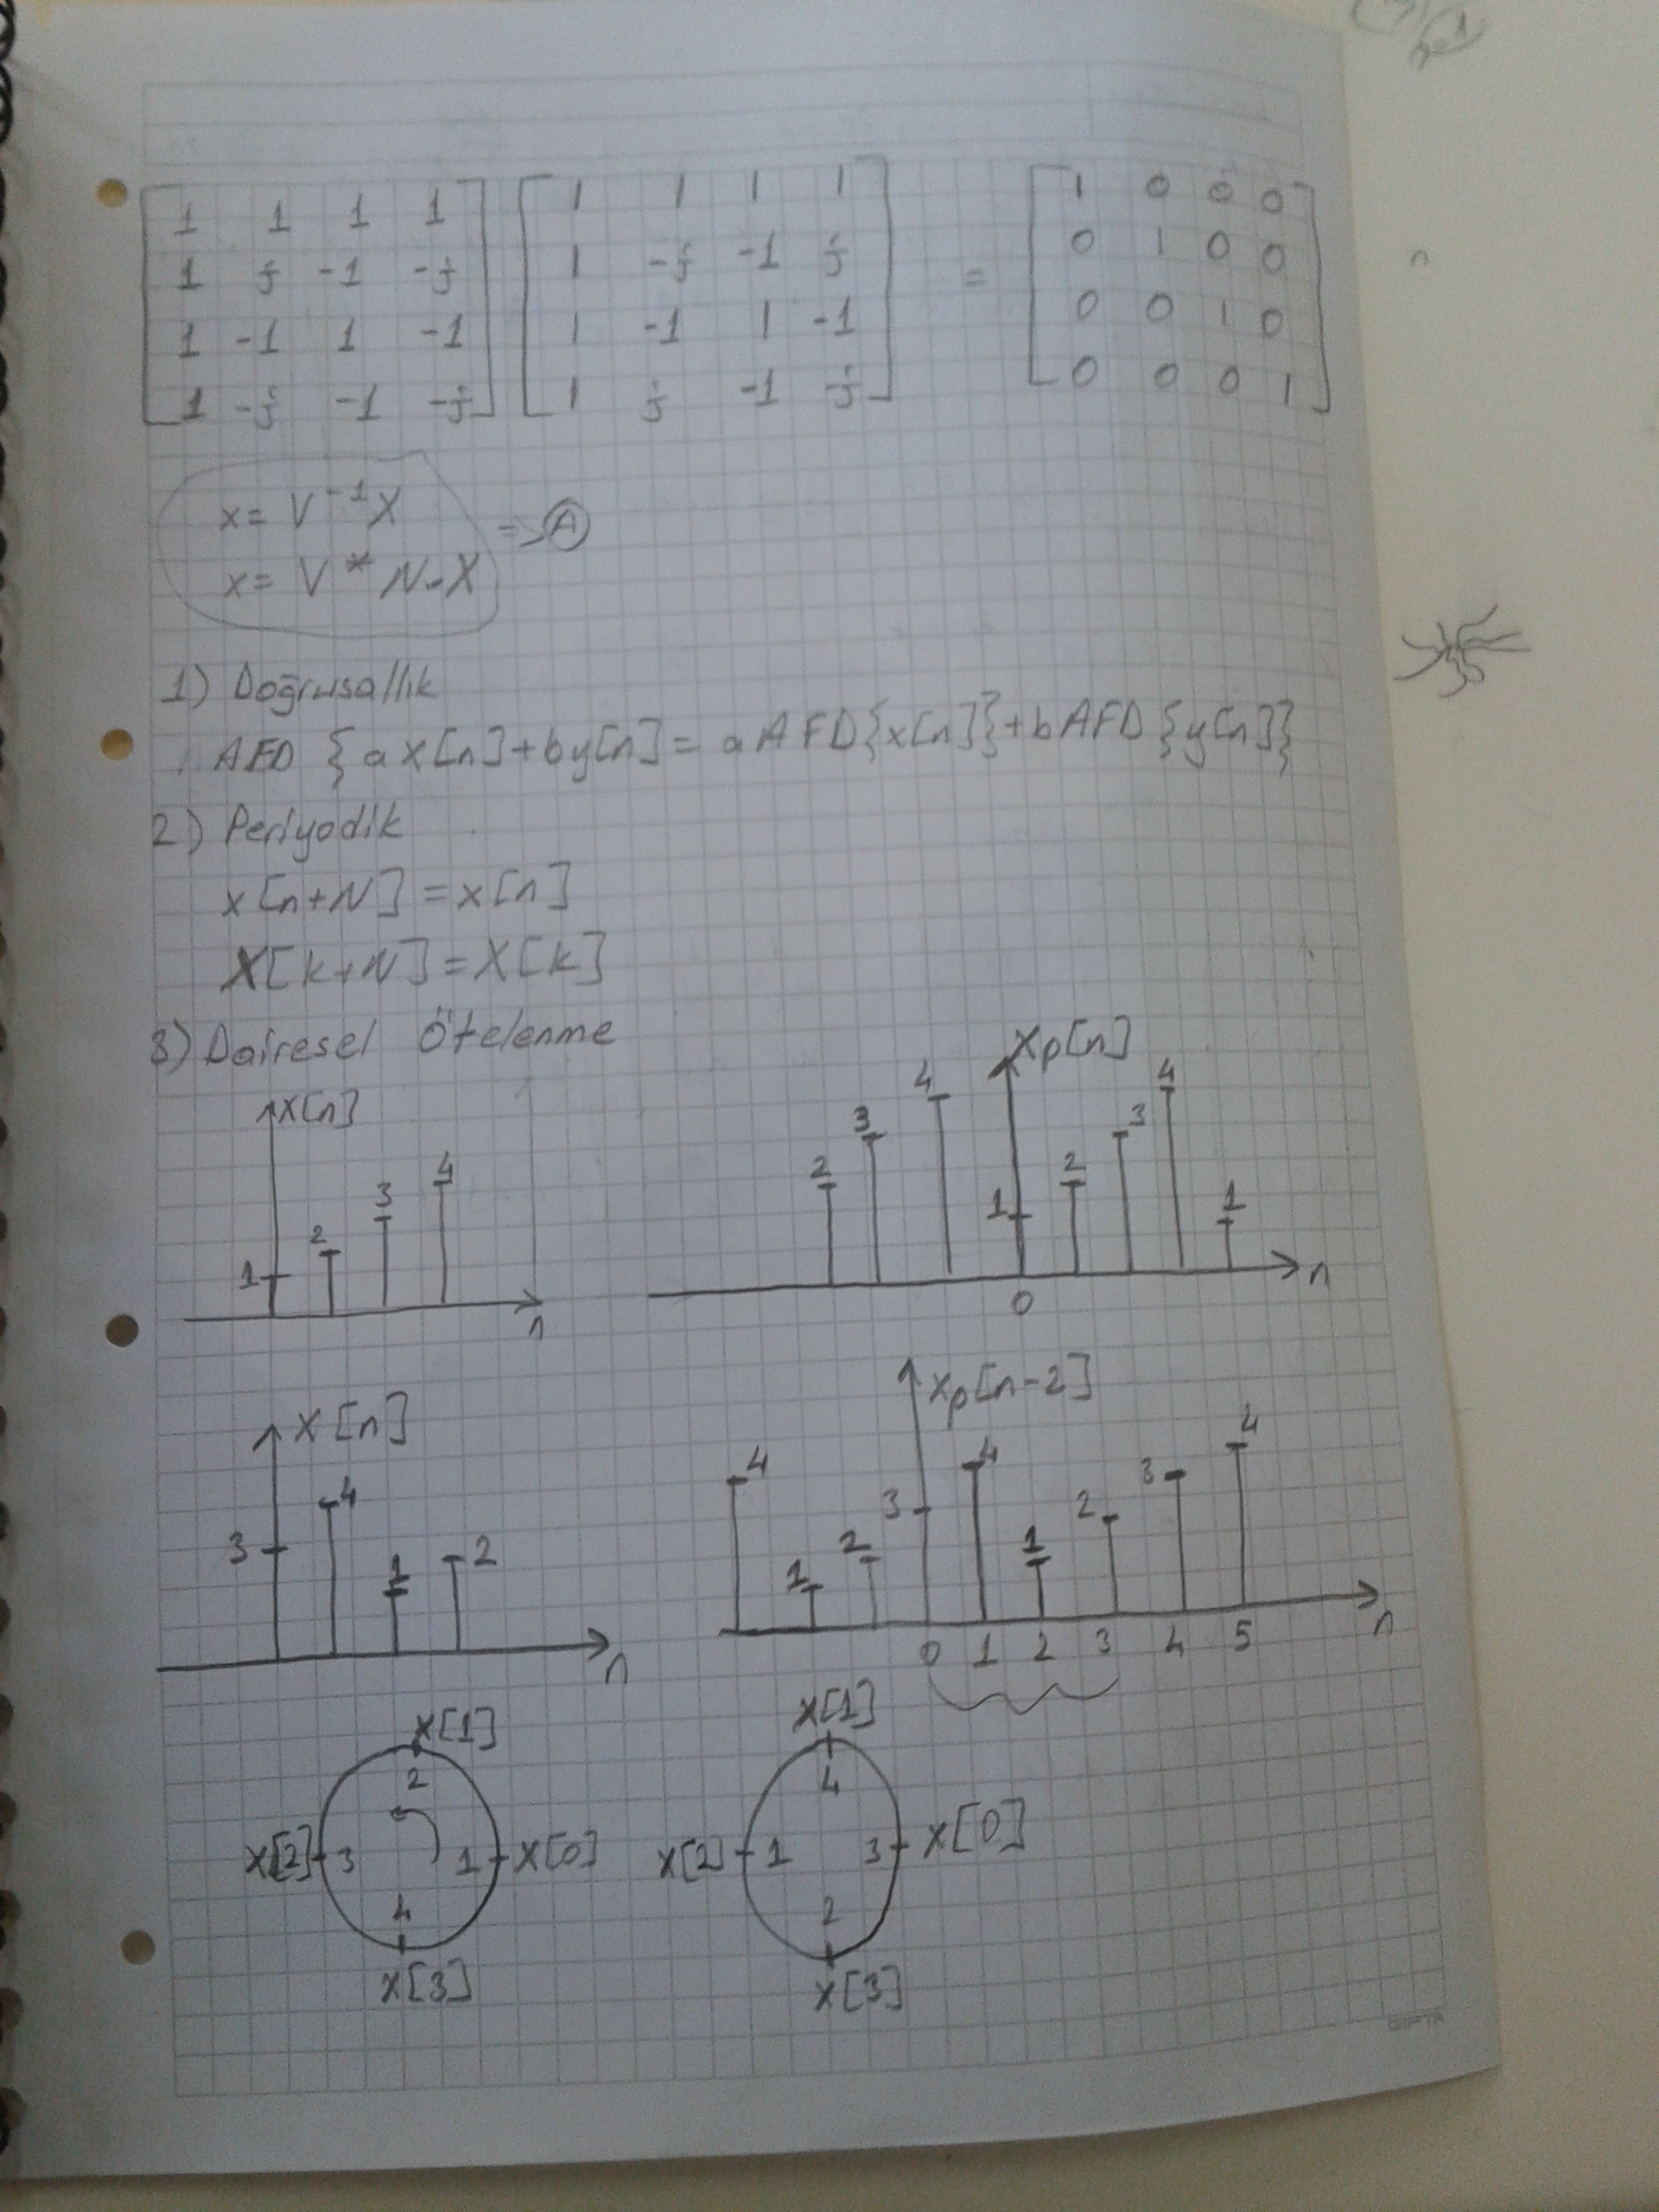 1 1 1 1   1 1 1 1   1 0 0 0
1 j -1 -j   1 -j -1 j = 0 1 0 0
1 -1 1 -1   1 -1 1 -1   0 0 1 0
1 -j -1 -j   1 j -1 -j   0 0 0 1
x = V⁻¹X
=> A
x = V* N-X
1) Doğrusallık
AFD {ax[n]+by[n] = aAFD{x[n]}+bAFD{y[n]}
2) Periyodik
x[n+N] = x[n]
X[k+N] = X[k]
3) Dairesel Ötelenme
x[n]
1 2 3 4
n
xp[n]
2 3 4 1 2 3 4 1
0 n
x[n]
3 4 1 2
n
xp[n-2]
4 1 2 3 4 1 2 3 4
0 1 2 3 4 5 n
x[1]
2
x[2] 3 1 x[0]
4
x[3]
x[1]
4
x[2] 1 3 x[0]
2
x[3]